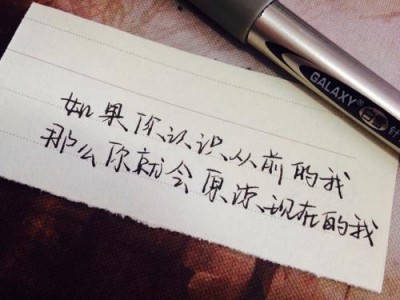 如果你认识从前的我
那么你就会原谅现在的我
GALAXY